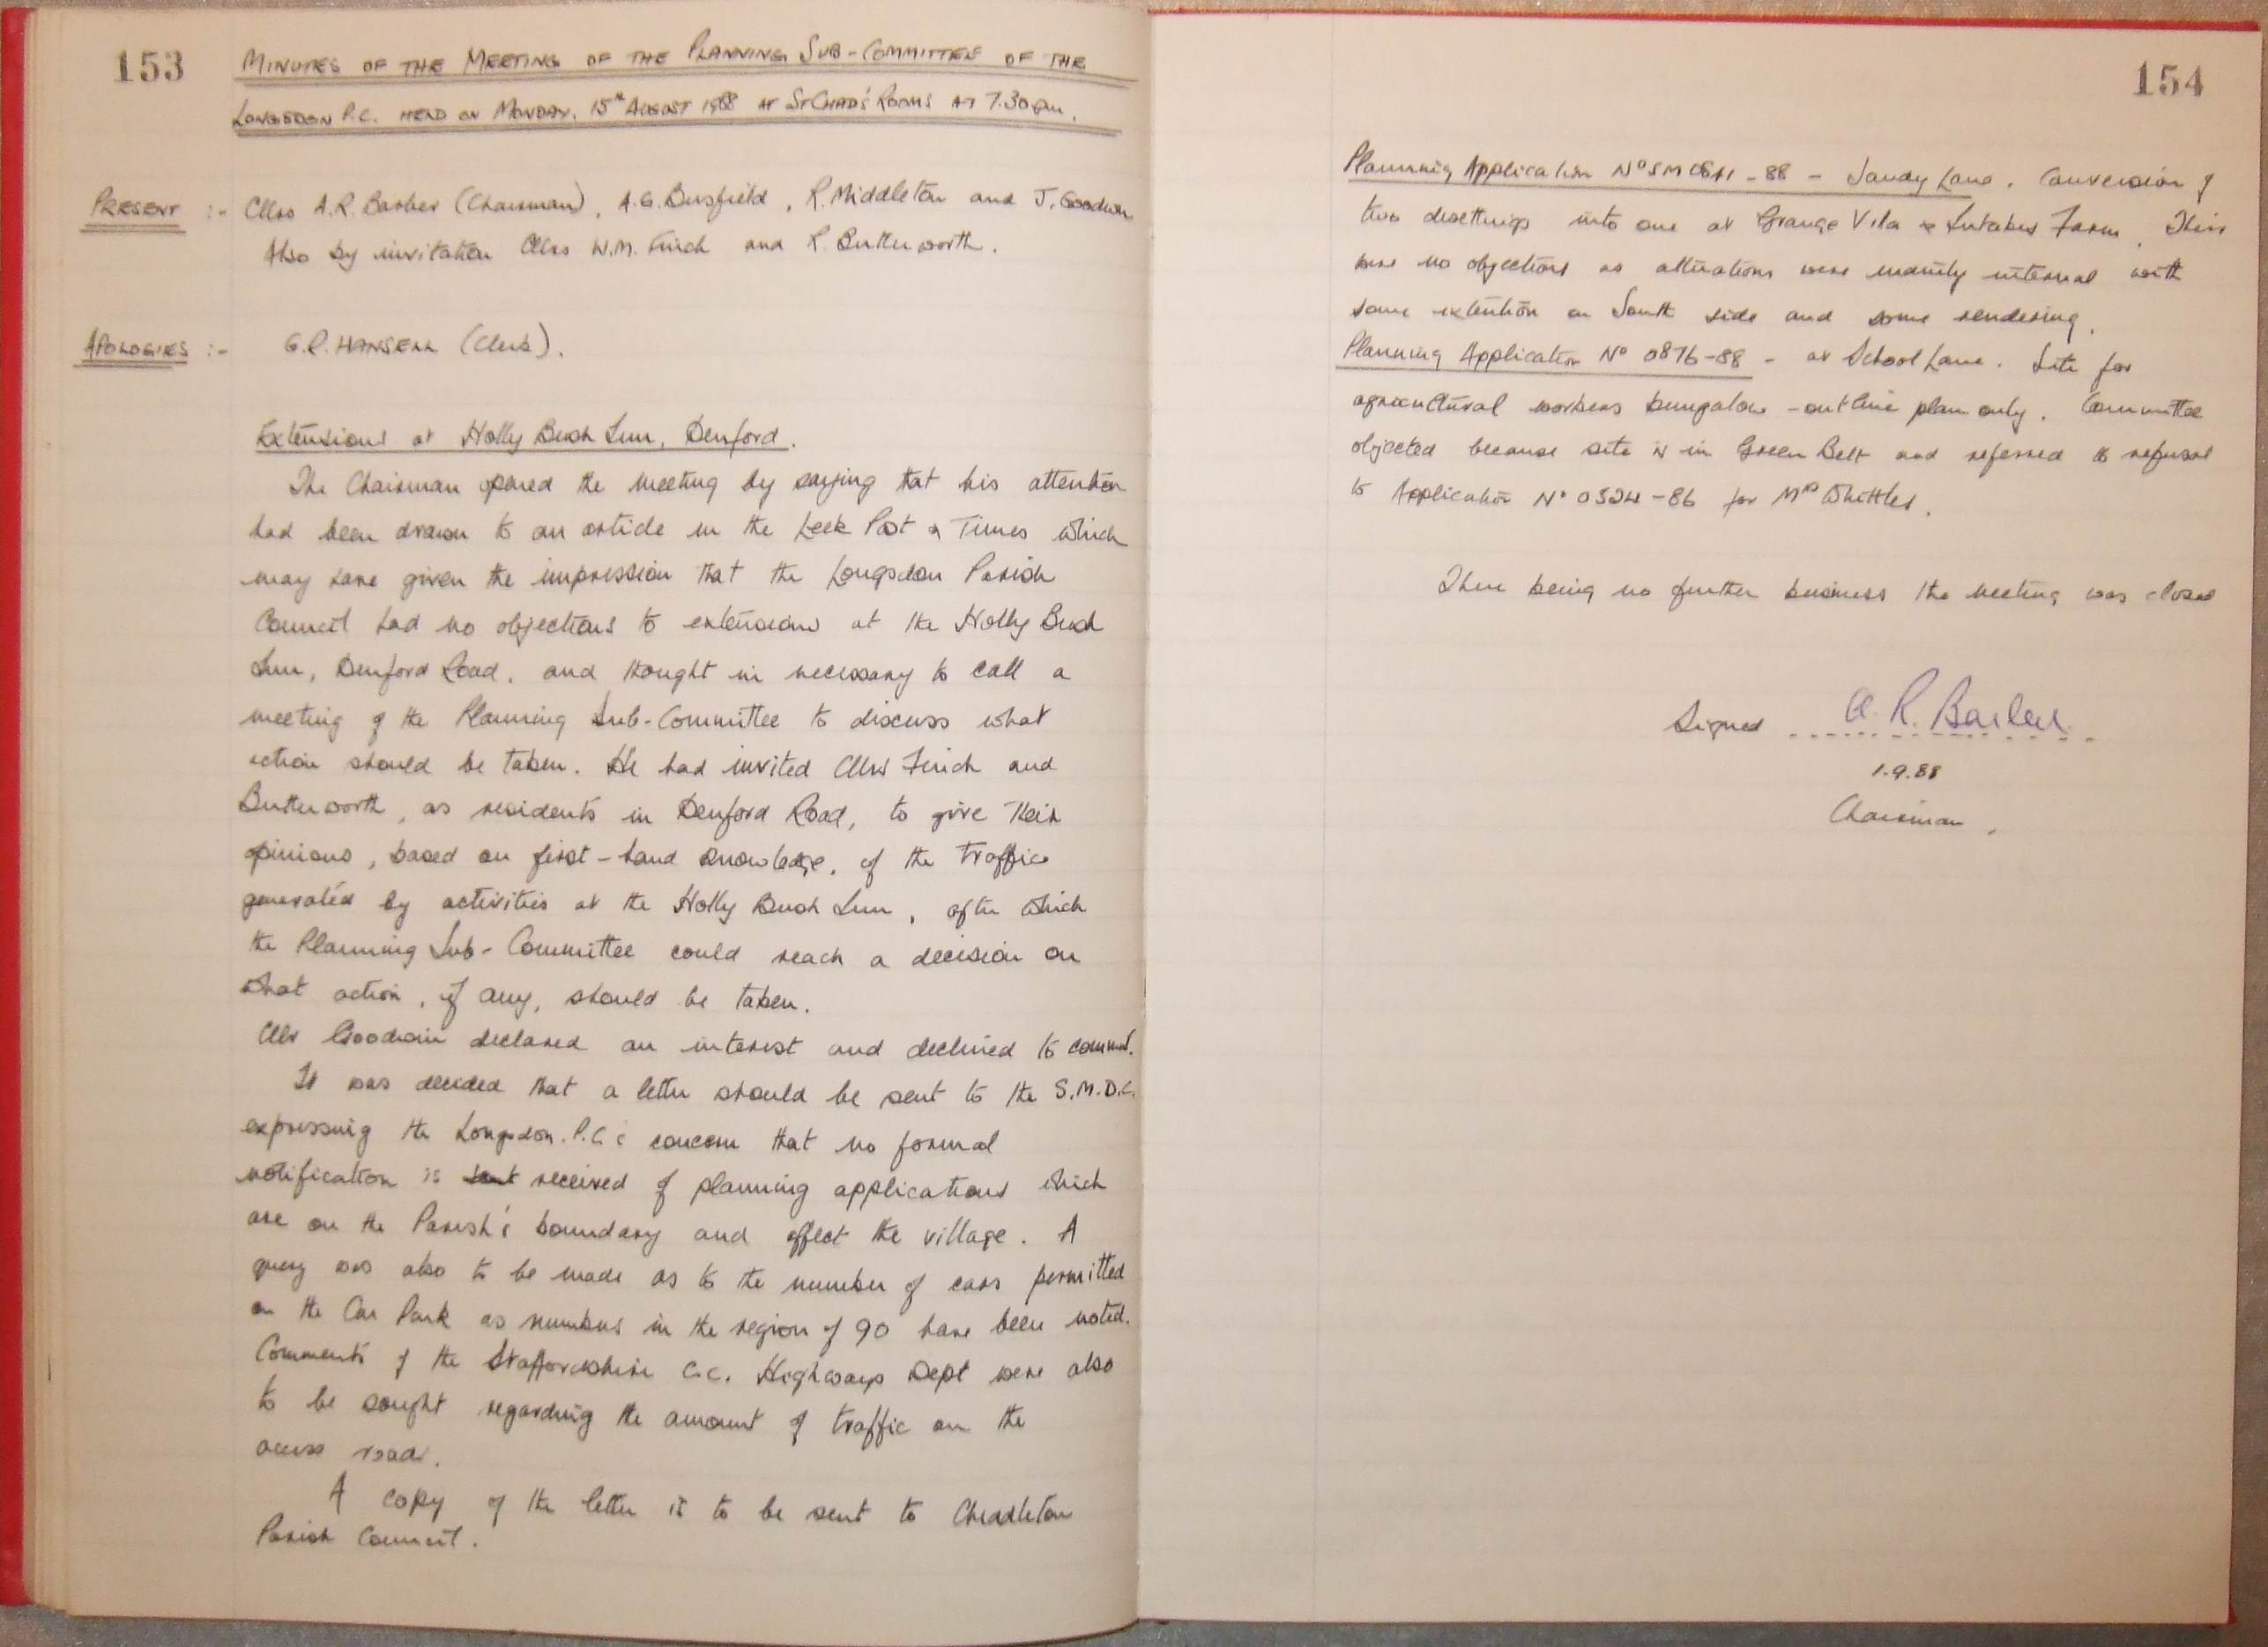 153
MINUTES OF THE MEETING OF THE PLANNING SUB-COMMITTEE OF THE
LONGSDON P.C. HELD ON MONDAY, 15th AUGUST 1988 AT ST CHAD'S ROOMS AT 7.30pm.
PRESENT :- Cllrs A.R. Barber (Chairman), A.G. Busfield, R. Middleton and J. Goodwin
Also by invitation Cllrs W.M. Finch and R. Butterworth.
APOLOGIES :- G.P. HANSELL (Clerk).
Extensions at Holly Bush Inn, Denford.
The Chairman opened the meeting by saying that his attention
had been drawn to an article in the Leek Post & Times which
may have given the impression that the Longsdon Parish
Council had no objections to extensions at the Holly Bush
Inn, Denford Road, and thought in necessary to call a
meeting of the Planning Sub-Committee to discuss what
action should be taken. He had invited Cllrs Finch and
Butterworth, as residents in Denford Road, to give their
opinions, based on first-hand knowledge, of the traffic
generated by activities at the Holly Bush Inn, after which
the Planning Sub-Committee could reach a decision on
what action, if any, should be taken.
Cllr Goodwin declared an interest and declined to comment.
It was decided that a letter should be sent to the S.M.D.C.
expressing the Longsdon P.C.'s concern that no formal
notification is sent received of planning applications which
are on the Parish's boundary and affect the village. A
query was also to be made as to the number of cars permitted
on the Car Park as numbers in the region of 90 have been noted.
Comments of the Staffordshire C.C. Highways Dept were also
to be sought regarding the amount of traffic on the
access road.
A copy of the letter is to be sent to Cheddleton
Parish Council.
154
Planning Application No SM -88 - Sandy Lane. Conversion of
two dwellings into one at Grange Villa & Intakes Farm. There
were no objections as alterations were mainly internal with
some extention on South side and some rendering.
Planning Application No 0876-88 - at School Lane. Site for
agricultural workers bungalow - outline plan only. Committee
objected because site is in Green Belt and referred to refusal
to Application No 0324-86 for Mrs Whittles.
There being no further business the meeting was closed
Signed A. R. Barber
1.9.88
Chairman.